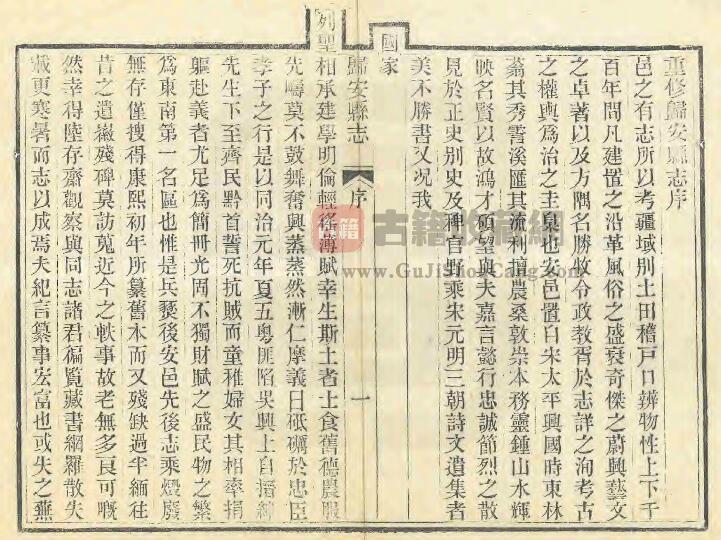 重修歸安縣志序
邑之有志所以考疆域別土田稽戶口辨物性上下千
百年間凡建置之沿革風俗之盛衰奇傑之蔚興藝文
之卓著以及方隅名勝牧令政教胥於志詳之洵考古
之權輿為治之圭臬也安邑置自宋太平興國時東林
蓊其秀霅溪匯其流利壇農桑敦崇本務靈鍾山水輝
映名賢以故鴻才碩望與夫嘉言懿行忠誠節烈之散
見於正史別史及稗官野乘宋元明三朝詩文遺集者
美不勝書又況我
國家
歸安縣志
序
一
列聖相承建學明倫輕徭薄賦幸生斯土者士食舊德農服
先疇莫不鼓舞奮興蒸蒸然漸仁摩義日砥礪於忠臣
孝子之行是以同治元年夏五粵匪陷吳興上自搢紳
先生下至齊民黔首誓死抗賊而童稚婦女其相率捐
軀赴義者尤足為簡冊光固不獨財賦之盛民物之繁
為東南第一名區也惟是兵燹後安邑先後志乘燬廢
無存僅搜得康熙初年所纂舊本而又殘缺過半緬往
昔之遺徽殘碑莫訪蒐近今之軼事故老無多良可嘅
然幸得陸存齋觀察與同志諸君徧覽藏書網羅散失
載更寒暑而志以成焉夫紀言纂事宏富也或失之蕪
古籍
古籍收藏網
www.GuJiShouCang.com